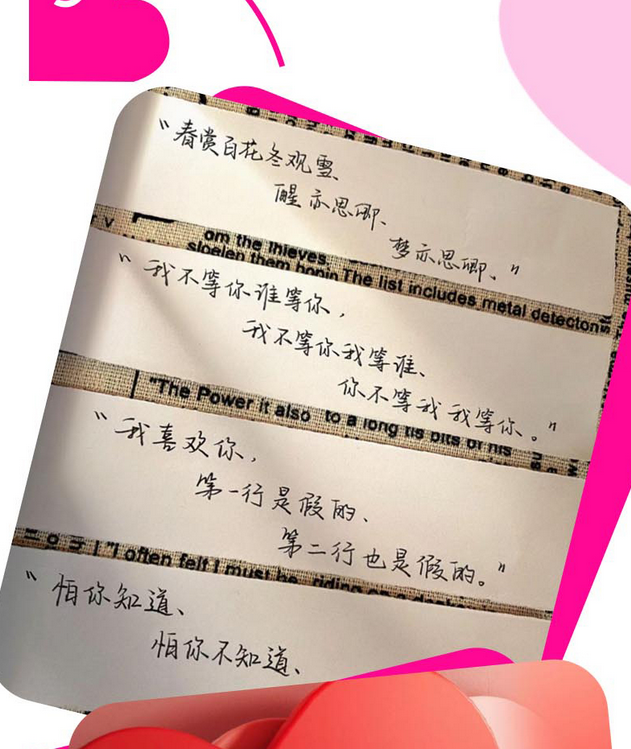 "春赏百花冬观雪、
醒亦思卿、
梦亦思卿、"
om the thieves.
sloelen them honin The list includes metal detectons
"我不等你谁等你，
我不等你我等谁、
你不等我我等你。"
"The Power it also to a long tis bits of his
"我喜欢你，
第一行是假的、
第二行也是假的。"
"I often felt I must be riding on a
"怕你知道、
怕你不知道、